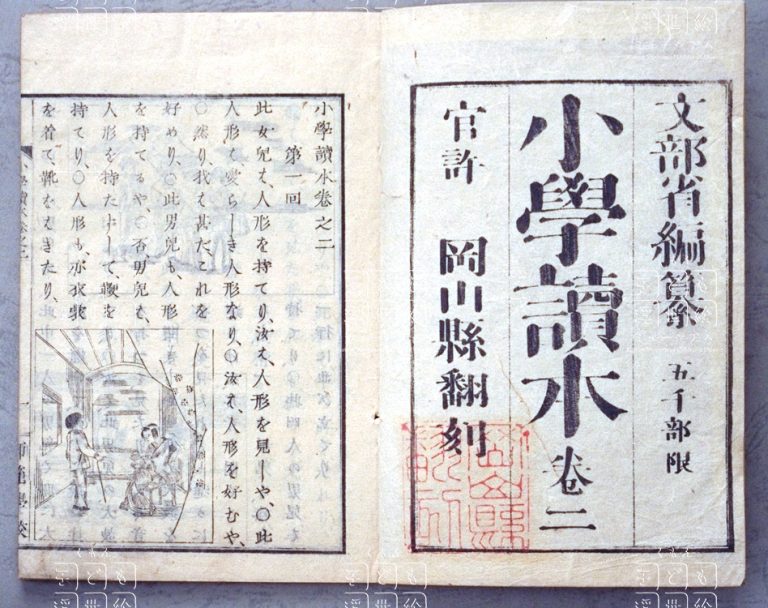 文部省編纂 五千部限
小學讀本 卷二
官許 岡山縣翻刻
小學讀本卷之二
第一回
此女兒は、人形を持てり、汝は、人形を見しや、〇此
人形は愛らしき人形なり、〇汝は、人形を好むや、
〇然り、我は甚だこれを
好めり、〇此男兒も、人形
を持てるや、〇否、男兒は、
人形を持たずして、鞭を
持てり、〇人形も、亦衣裳
を着て、靴をはきたり、